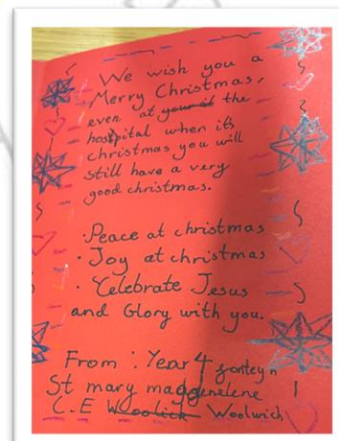 We wish you a
Merry Christmas,
even at your at the
hospital when its
christmas you will
still have a very
good christmas.
• Peace at christmas
• Joy at christmas
• Celebrate Jesus
and Glory with you.
From : Year 4 fonteyn
St mary magdgenelene
C.E Woolich Woolwich